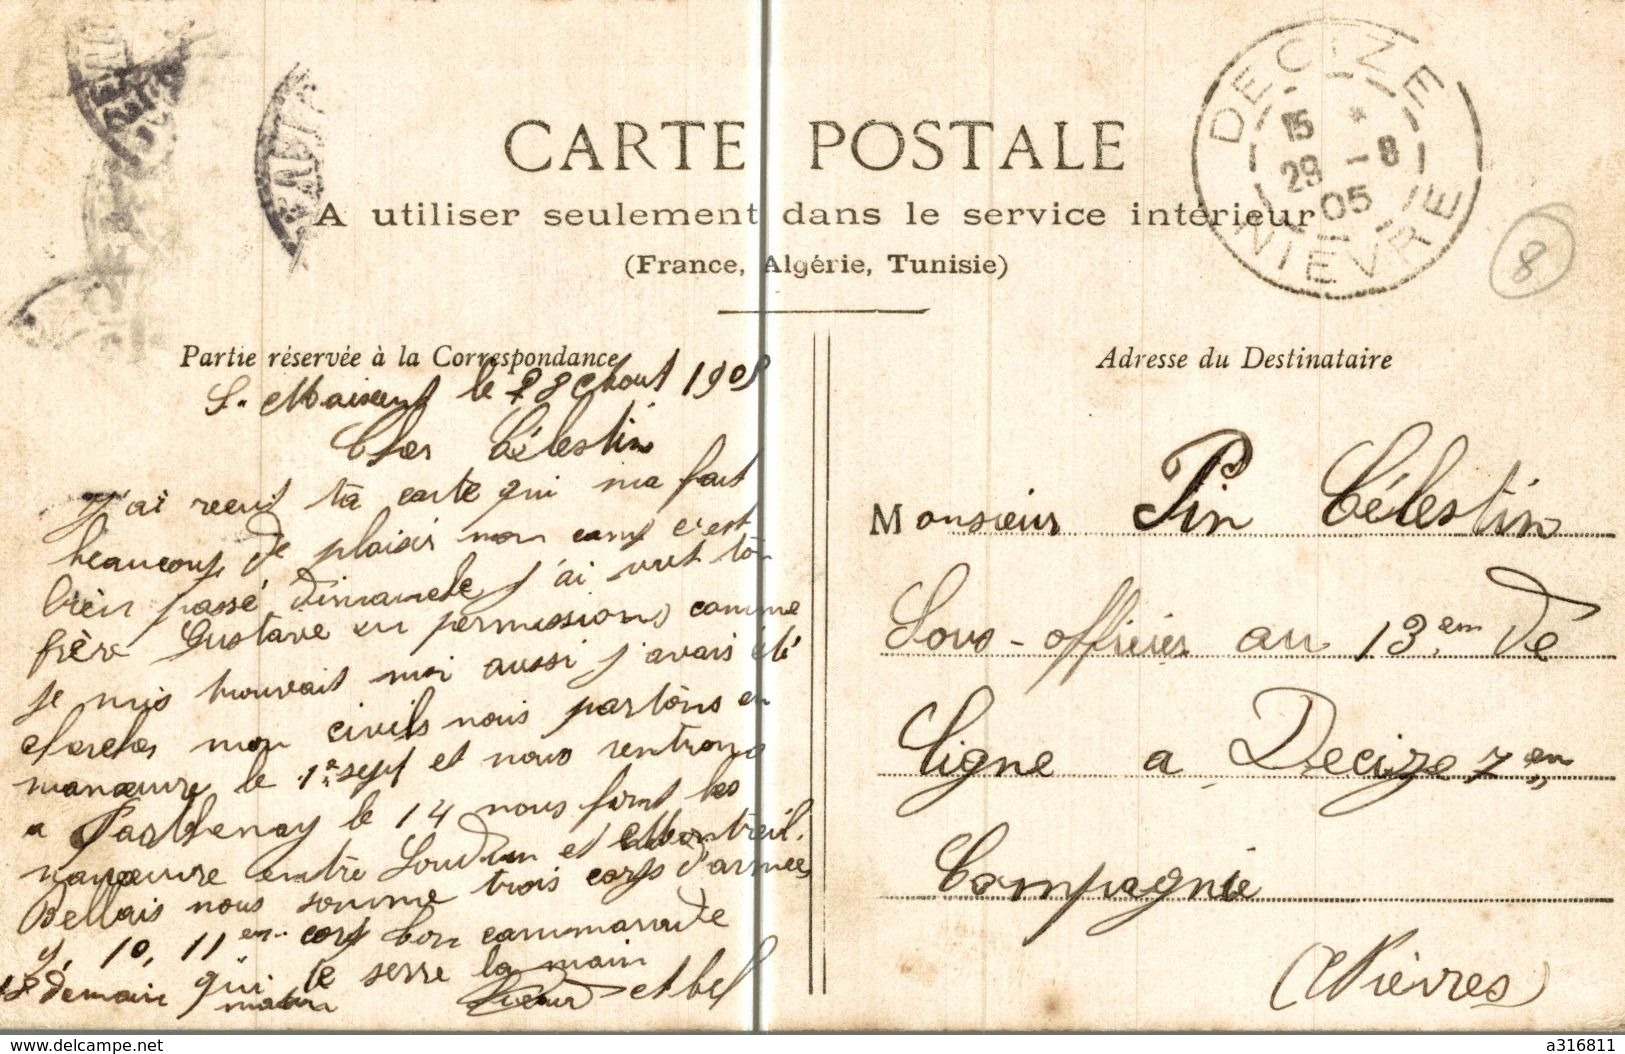 CARTE POSTALE
A utiliser seulement dans le service intérieur
(France, Algérie, Tunisie)
DECIZE
15 *
29 - 8
05
NIEVRE
8
PARI
Partie réservée à la Correspondance
S. Maixent le 28 Aout 1905
Cher Célestin
J'ai recut ta carte qui ma fait
beaucoup de plaisir mon camp c'est
bien passé, dimanche j'ai vut ton
frère Gustave en permissions comme
je mis trouvait moi aussi j'avais été
chercher mon civils nous partons en
manœuvre le 1er sept et nous rentrons
a Parthenay le 14 nous font les
manœuvre entre Loudun et Montreuil.
Bellais nous somme trois corps d'armée
9, 10, 11em corp bon cammarade
qui te serre la main
demain matin
et bel
Adresse du Destinataire
Monsieur Pin Célestin
Sous-officier au 13em de
Ligne a Decize 7em
Compagnie
(Nièvres)
delcampe.net
a316811